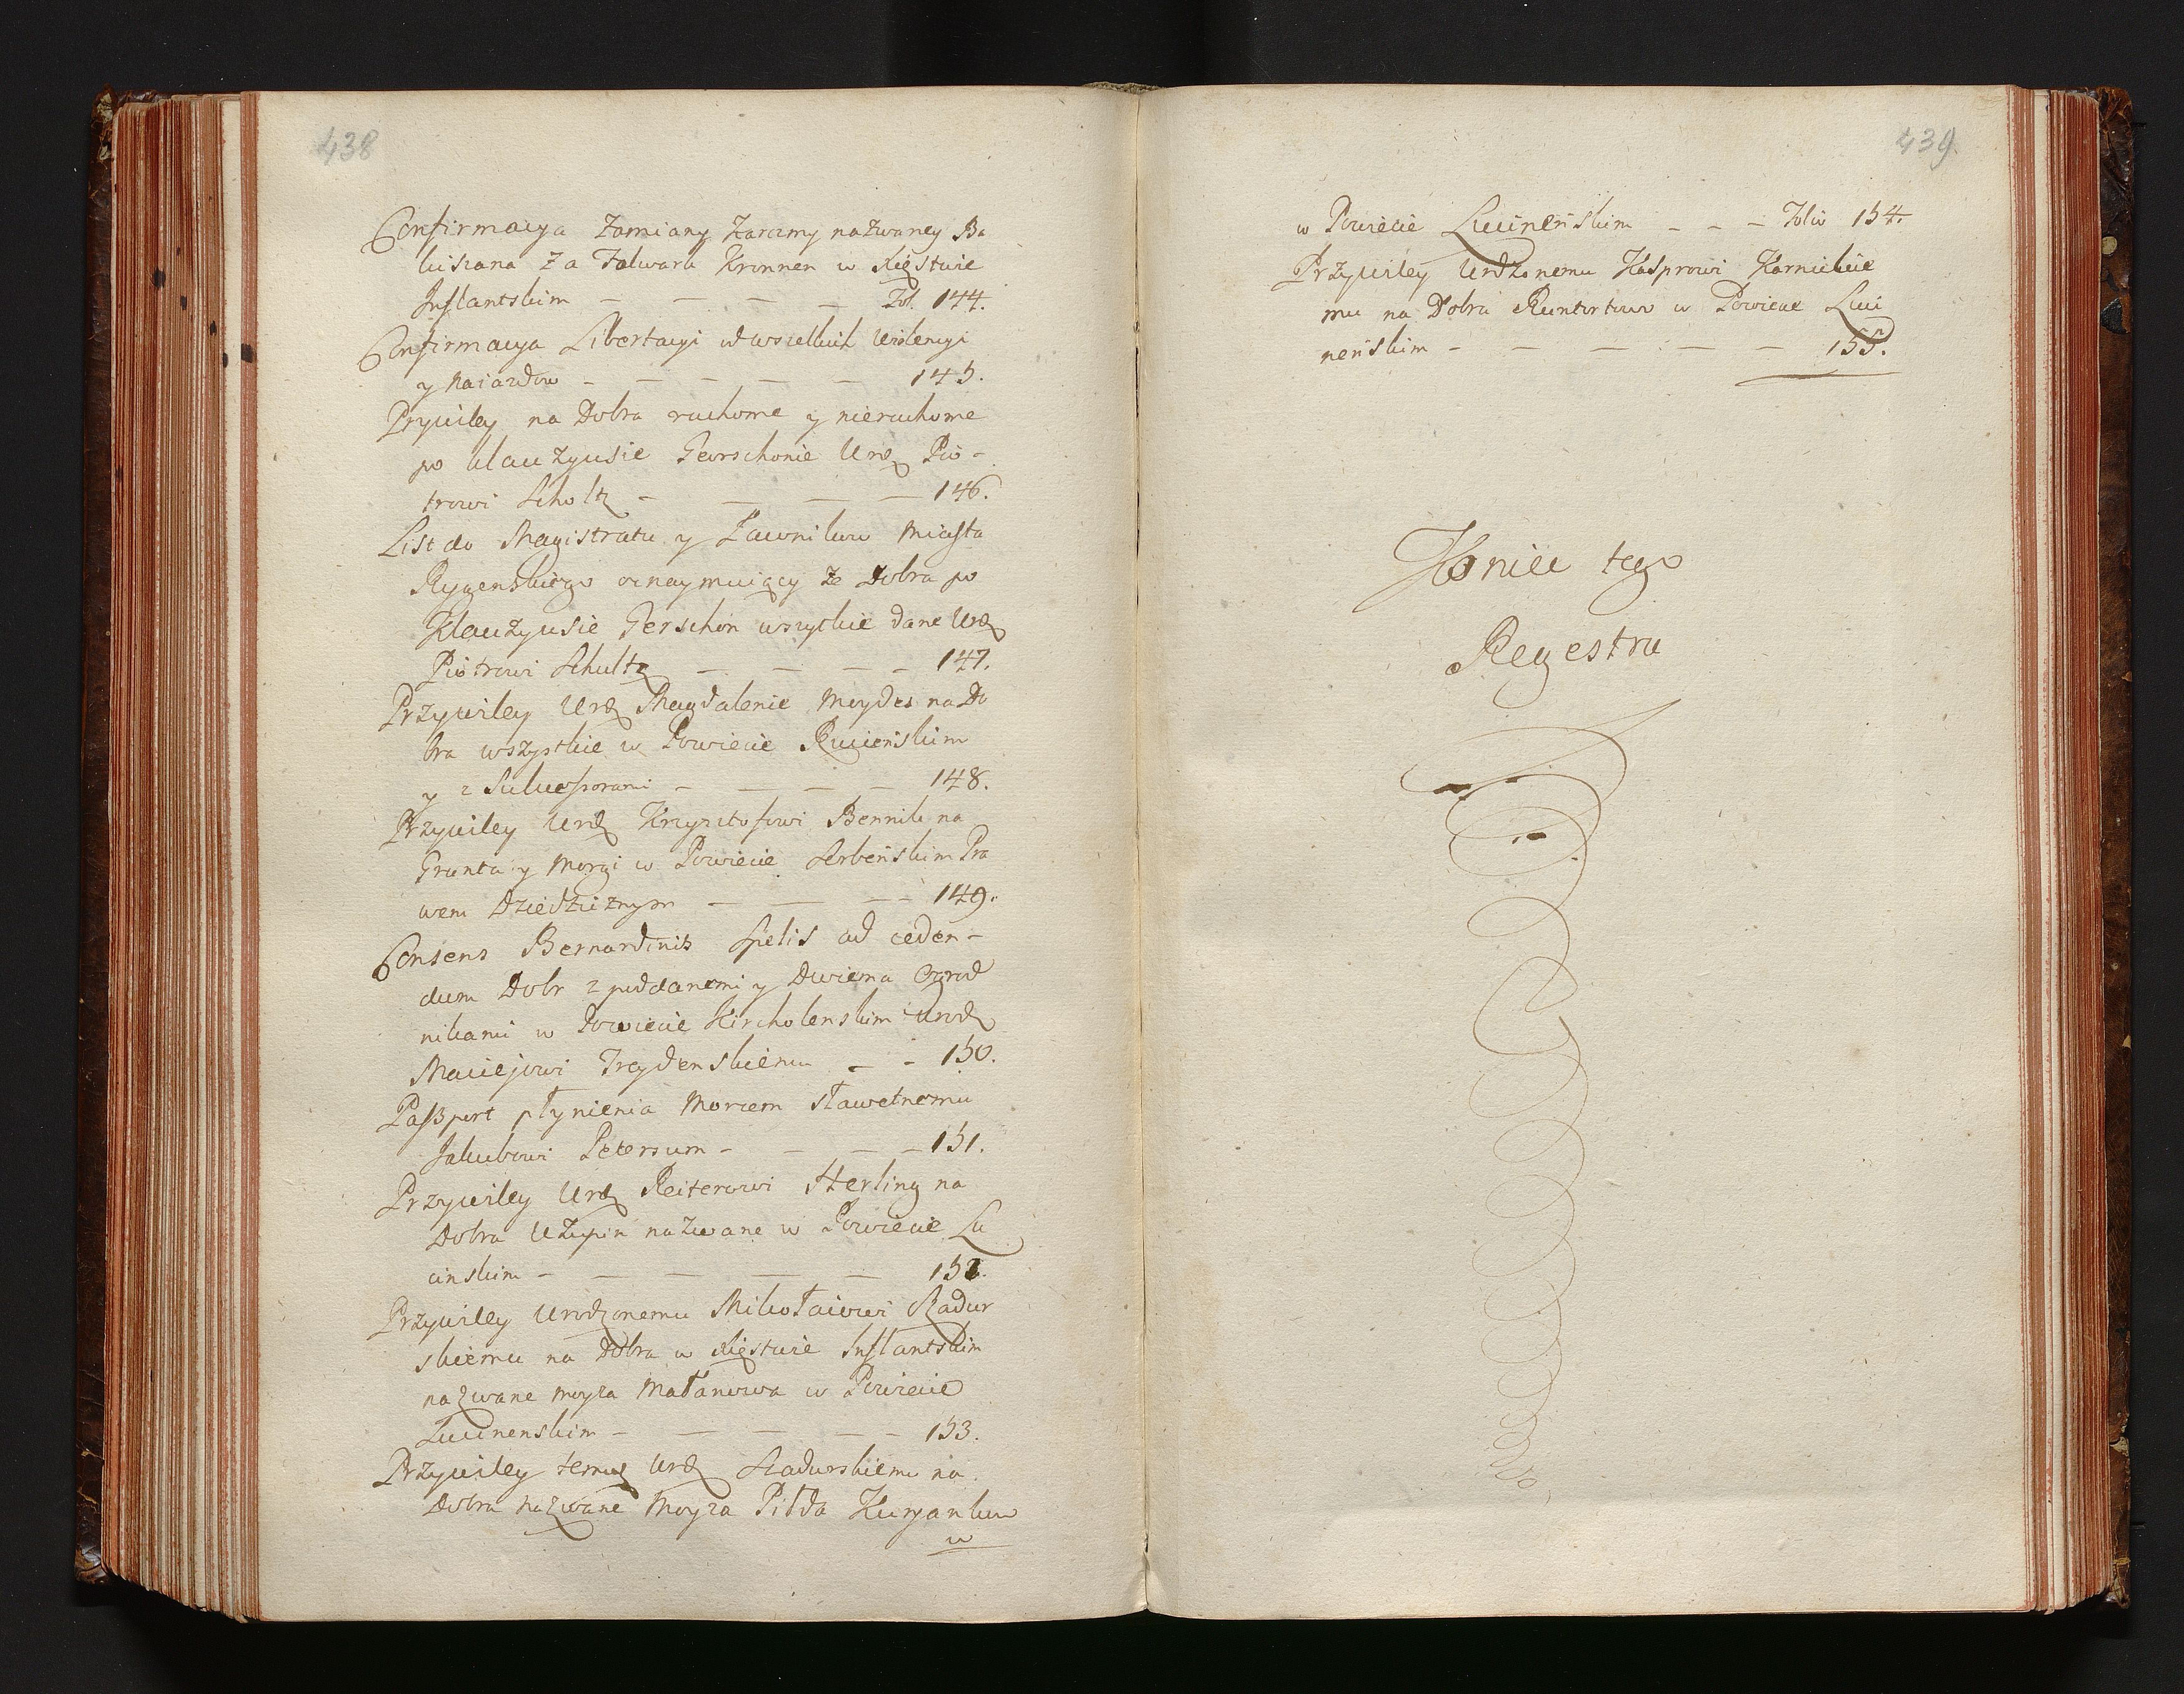 438
Confirmacya Zamiany Karczmy nazwaney Ba
biszana Za Folwark Kronnen w Xięstwie
Inflantskim — — — — Fol. 144.
Confirmacya Libertacyi od wszelkich Wiolencyi
y Naiazdow — — — — — 145.
Prywiley na Dobra ruchome y nieruchome
po Klauzyusie Gerschonie Urdz Pio-
trowi Scholtz — — — — 146.
List do Magistratu y Ławnikow Miasta
Rygenskiego oznaymuiący że Dobra po
Klauzyusie Gerschon wszytkie dane Urdz
Piotrowi Schultz — — — — 147.
Przywiley Urdz Magdalenie Meydes na Do
bra wszystkie w Powiecie Rugieńskim
y z Sukcessorami — — — — 148.
Przywiley Urdz Krzysztofowi Bennik na
Grunta y Morgi w Powiecie Serbeńskim Pra
wem Dziedzicznym — — — — 149.
Consens Bernardinis Spelis ad ceden-
dum Dobr z poddanemi y Dwiema Ogrod
nikami w Powiecie Kircholenskim Urodz
Maciejowi Treydenskiemu — — 150.
Paszport płynienia Morzem sławetnemu
Jakubowi Petersum — — — — 151.
Przywiley Urdz Reiterowi Sterling na
Dobra Użypin nazwane w Powiecie Lu
cinskim — — — — — 152.
Przywiley Urodzonemu Mikołaiowi Szadur
skiemu na Dobra w Xięstwie Inflantskim
nazwane Moyza Małanowa w Powiecie
Lucinenskim — — — — — 153.
Przywiley temuż Urdz Szadurskiemu na
Dobra nazwane Moyza Piłda Kurjankow
w
439.
w Powiecie Lucineńskim — — — Folio 154.
Przywiley Urdzonemu Kasprowi Karnickie
mu na Dobra Runtortowo w Powiecie Luci
neńskim — — — — — 155.
Koniec tego
Regestru